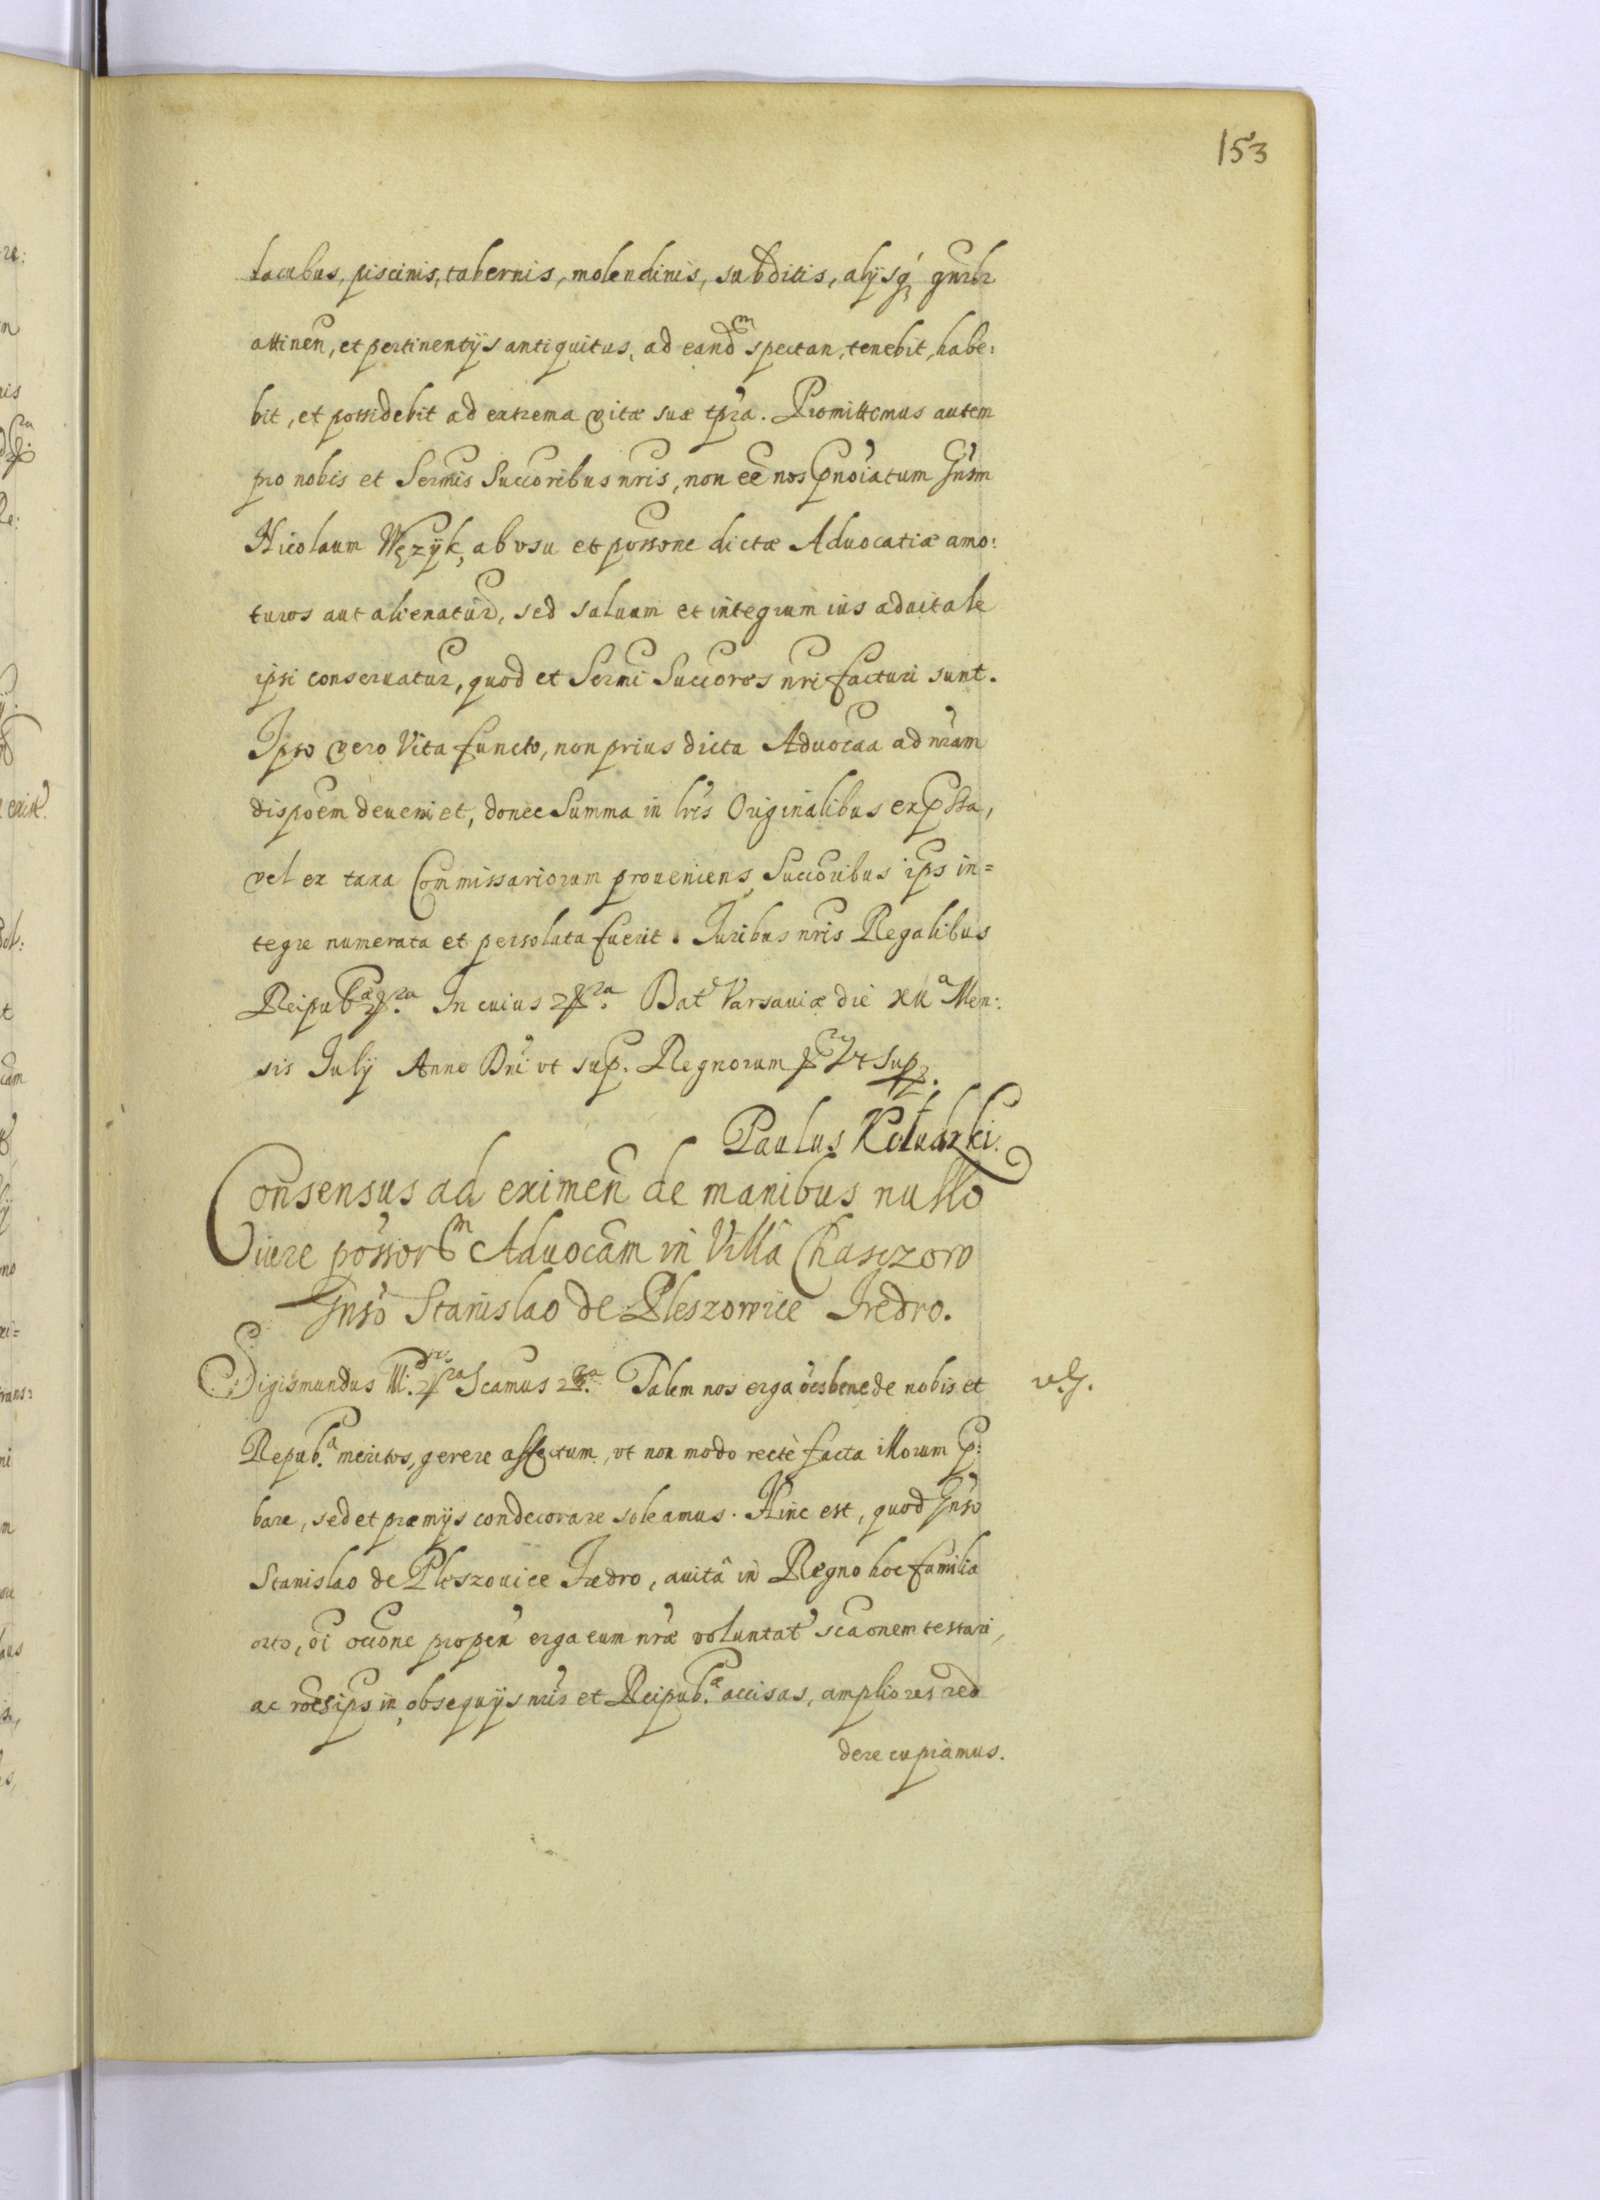 153
lacubus, piscinis, tabernis, molendinis, subditis, alijsq₃ gnrlr
attinen, et pertinentijs antiquitus, ad eandm spectan, tenebit, habe:
bit, et possidebit ad extrema vitæ suæ tpra. Promittemus autem
pro nobis et Sermis Succoribus nris, non ee nos pnoiatum Gnsm
Nicolaum Wężyk, ab vsu et possone dictæ Aduocatiæ amo:
turos aut alienatur, sed saluum et integrum ius aduitale
ipsi conseruatur, quod et Sermi Succores nri facturi sunt.
Ipso vero Vita functo, non prius dicta Aduocaa ad nram
dispoem deueniet, donec Summa in lris Originalibus expssa,
vel ex taxa Commissariorum proueniens, Succoribus ips in=
tegre numerata et persoluta fuerit. Juribus nris Regalibus
Reipubcæ In cuius Dat Varsauiæ die XII a Men:
sis July Anno Dni vt sup. Regnorum vt sup.
Paulus Wołuczki.
Consensus ad eximen de manibus nullo
Iure possorm Aduocam in Villa Chaszow
Gnso Stanislao de Pleszowice Fredro.
Sigismundus III. Scamus Talem nos erga oes bene de nobis et
v.g.
Repub.a meritos, gerere affectum, vt non modo rectè facta illorum p:
bare, sed et præmijs condecorare soleamus. Hinc est, quod Gnso
Stanislao de Pleszouice Fredro, auitâ in Regno hoc familia
orto, oi occone propen erga eum nræ voluntat scaonem testari,
ac roes ips in obsequijs nris et Reipub.æ accisas, ampliores red
dere cupiamus.